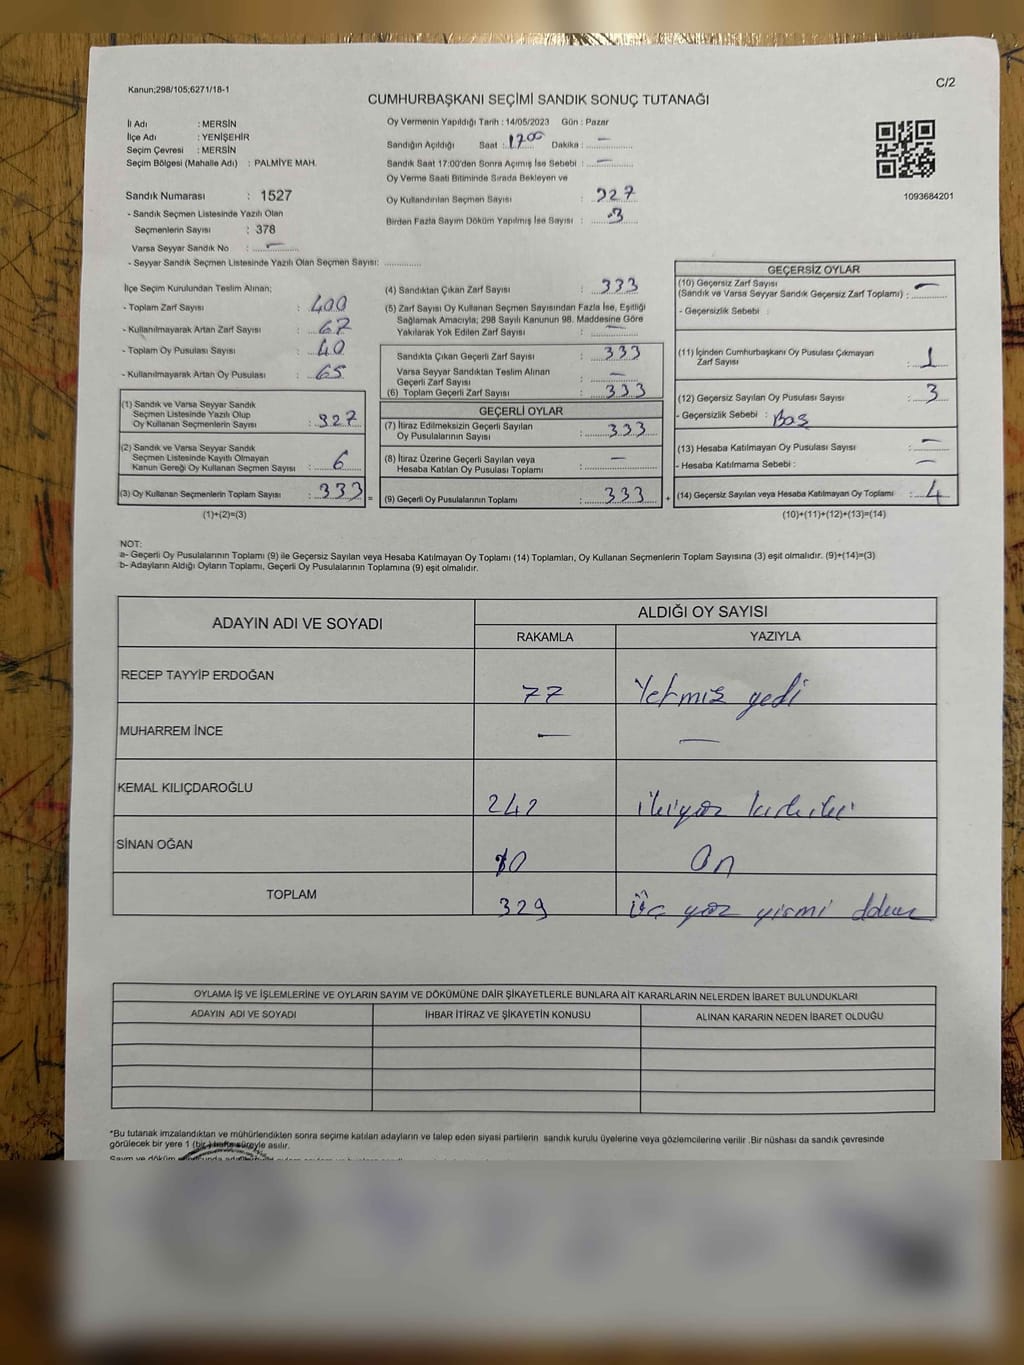 Kanun;298/105;6271/18-1
C/2
CUMHURBAŞKANI SEÇİMİ SANDIK SONUÇ TUTANAĞI
İl Adı : MERSİN
İlçe Adı : YENİŞEHİR
Seçim Çevresi : MERSİN
Seçim Bölgesi (Mahalle Adı) : PALMİYE MAH.
Oy Vermenin Yapıldığı Tarih : 14/05/2023 Gün : Pazar
Sandığın Açıldığı Saat : 17:00 Dakika : —
Sandık Saat 17:00'den Sonra Açımış İse Sebebi : —
Oy Verme Saati Bitiminde Sırada Bekleyen ve
Oy Kullandırılan Seçmen Sayısı : 327
Birden Fazla Sayım Döküm Yapılmış İse Sayısı : 3
1093684201
Sandık Numarası : 1527
- Sandık Seçmen Listesinde Yazılı Olan
Seçmenlerin Sayısı : 378
Varsa Seyyar Sandık No : —
- Seyyar Sandık Seçmen Listesinde Yazılı Olan Seçmen Sayısı:
İlçe Seçim Kurulundan Teslim Alınan;
- Toplam Zarf Sayısı : 400
- Kullanılmayarak Artan Zarf Sayısı : 67
- Toplam Oy Pusulası Sayısı : 40
- Kullanılmayarak Artan Oy Pusulası : 65
(1) Sandık ve Varsa Seyyar Sandık
Seçmen Listesinde Yazılı Olup
Oy Kullanan Seçmenlerin Sayısı : 327
(2) Sandık ve Varsa Seyyar Sandık
Seçmen Listesinde Kayıtlı Olmayan
Kanun Gereği Oy Kullanan Seçmen Sayısı : 6
(3) Oy Kullanan Seçmenlerin Toplam Sayısı : 333 =
(1)+(2)=(3)
(4) Sandıktan Çıkan Zarf Sayısı : 333
(5) Zarf Sayısı Oy Kullanan Seçmen Sayısından Fazla İse, Eşitliği
Sağlamak Amacıyla; 298 Sayılı Kanunun 98. Maddesine Göre
Yakılarak Yok Edilen Zarf Sayısı : —
Sandıkta Çıkan Geçerli Zarf Sayısı : 333
Varsa Seyyar Sandıktan Teslim Alınan
Geçerli Zarf Sayısı : —
(6) Toplam Geçerli Zarf Sayısı : 333
GEÇERLİ OYLAR
(7) İtiraz Edilmeksizin Geçerli Sayılan
Oy Pusulalarının Sayısı : 333
(8) İtiraz Üzerine Geçerli Sayılan veya
Hesaba Katılan Oy Pusulası Toplamı : —
(9) Geçerli Oy Pusulalarının Toplamı : 333 +
GEÇERSİZ OYLAR
(10) Geçersiz Zarf Sayısı
(Sandık ve Varsa Seyyar Sandık Geçersiz Zarf Toplamı) : —
- Geçersizlik Sebebi :
(11) İçinden Cumhurbaşkanı Oy Pusulası Çıkmayan
Zarf Sayısı : 1
(12) Geçersiz Sayılan Oy Pusulası Sayısı : 3
- Geçersizlik Sebebi : Boş
(13) Hesaba Katılmayan Oy Pusulası Sayısı : —
- Hesaba Katılmama Sebebi : —
(14) Geçersiz Sayılan veya Hesaba Katılmayan Oy Toplamı : 4
(10)+(11)+(12)+(13)=(14)
NOT:
a- Geçerli Oy Pusulalarının Toplamı (9) ile Geçersiz Sayılan veya Hesaba Katılmayan Oy Toplamı (14) Toplamları, Oy Kullanan Seçmenlerin Toplam Sayısına (3) eşit olmalıdır. (9)+(14)=(3)
b- Adayların Aldığı Oyların Toplamı, Geçerli Oy Pusulalarının Toplamına (9) eşit olmalıdır.
ADAYIN ADI VE SOYADI ALDIĞI OY SAYISI
RAKAMLA YAZIYLA
RECEP TAYYİP ERDOĞAN 77 Yetmiş yedi
MUHARREM İNCE — —
KEMAL KILIÇDAROĞLU 242 ikiyüz kırkiki
SİNAN OĞAN 10 On
TOPLAM 329 Üç yüz yirmi dokuz
OYLAMA İŞ VE İŞLEMLERİNE VE OYLARIN SAYIM VE DÖKÜMÜNE DAİR ŞİKAYETLERLE BUNLARA AİT KARARLARIN NELERDEN İBARET BULUNDUKLARI
ADAYIN ADI VE SOYADI İHBAR İTİRAZ VE ŞİKAYETİN KONUSU ALINAN KARARIN NEDEN İBARET OLDUĞU
*Bu tutanak imzalandıktan ve mühürlendikten sonra seçime katılan adayların ve talep eden siyasi partilerin sandık kurulu üyelerine veya gözlemcilerine verilir .Bir nüshası da sandık çevresinde
görülecek bir yere 1 (bir) hafta süreyle asılır.
Sayım ve döküm